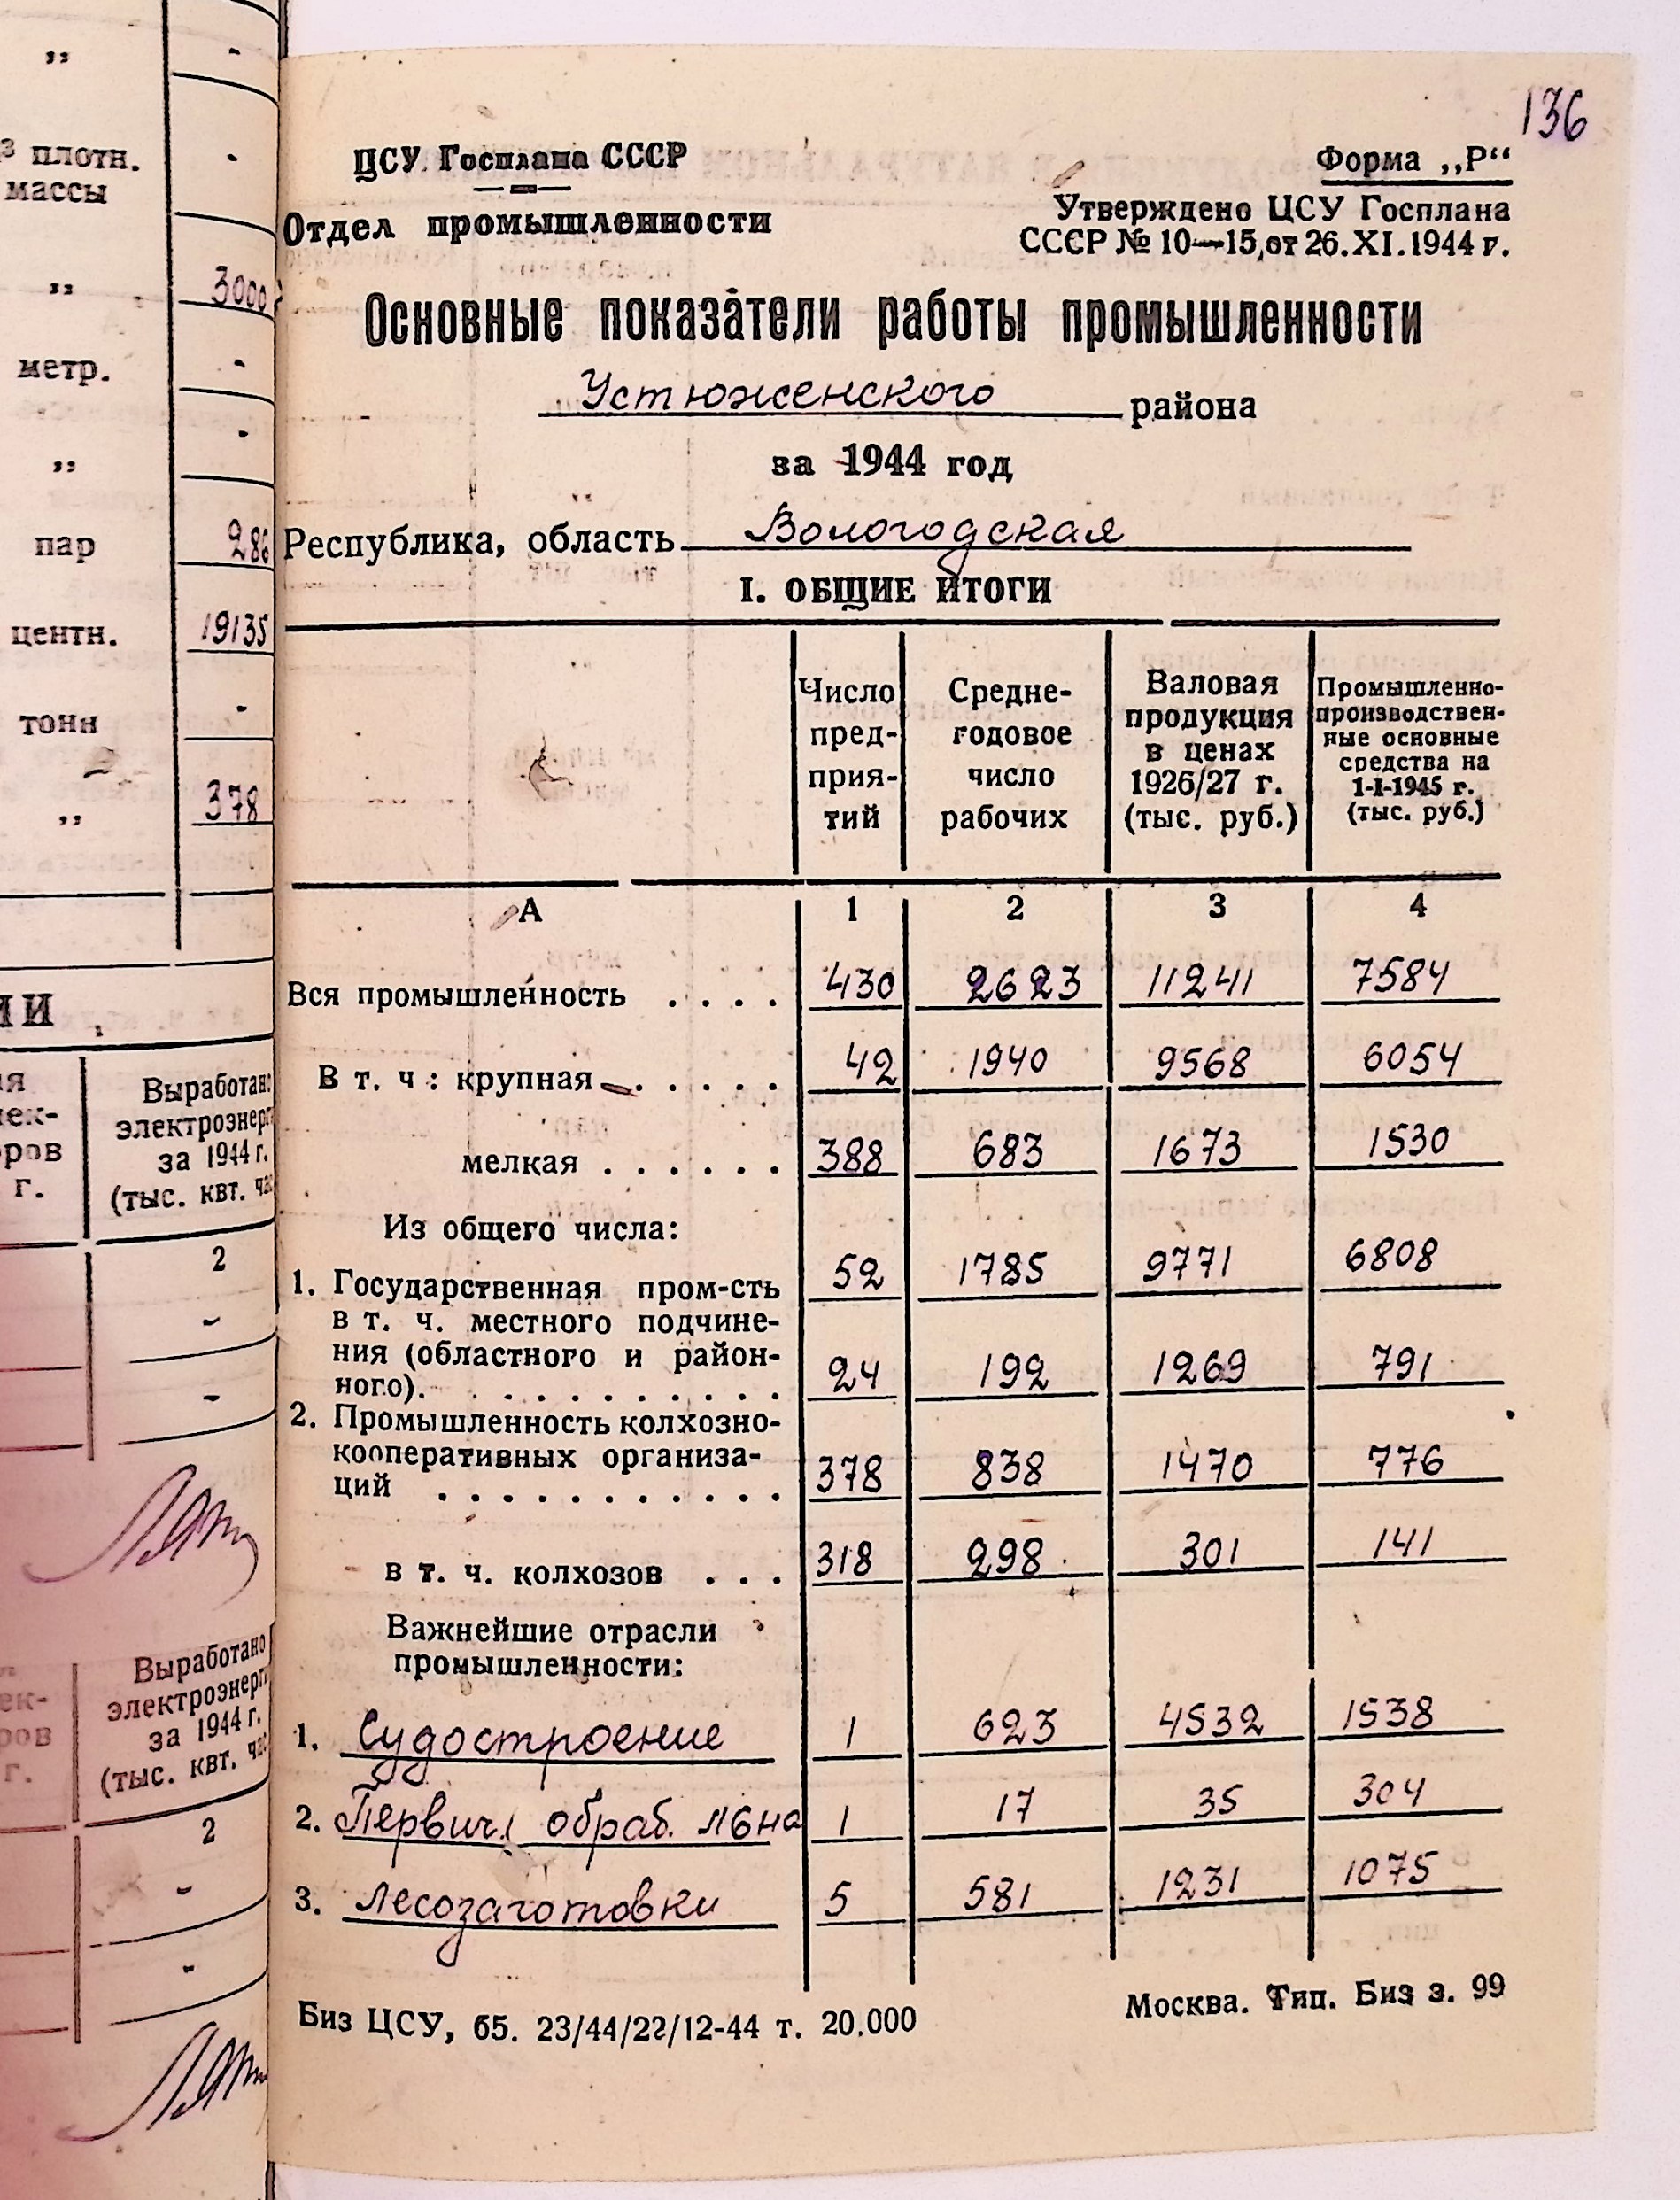 „
-
з плотн.
массы
-
„
3000
метр.
-
„
-
пар
286
центн.
19135
тонн
-
„
378
ИИ
Выработано
электроэнерг
за 1944 г.
(тыс. квт. час
г.
2
-
-
Выработано
электроэнерг
за 1944 г.
(тыс. квт. час
г.
2
-
-
136
ЦСУ Госплана СССР
Форма „Р“
Отдел промышленности
Утверждено ЦСУ Госплана
СССР № 10—15, от 26.XI.1944 г.
Основные показатели работы промышленности
Устюженского района
за 1944 год
Республика, область Вологодская
I. ОБЩИЕ ИТОГИ
Число пред-прия-тий
Средне-годовое число рабочих
Валовая продукция в ценах 1926/27 г. (тыс. руб.)
Промышленно-производствен-ные основные средства на 1-I-1945 г. (тыс. руб.)
А 1 2 3 4
Вся промышленность . . . . 430 2623 11241 7584
В т. ч : крупная . . . . . 42 1940 9568 6054
мелкая . . . . . . 388 683 1673 1530
Из общего числа:
1. Государственная пром-сть 52 1785 9771 6808
в т. ч. местного подчине-
ния (областного и район-
ного). . . . . . . . . . . 24 192 1269 791
2. Промышленность колхозно-
кооперативных организа-
ций . . . . . . . . . . . 378 838 1470 776
в т. ч. колхозов . . . 318 298 301 141
Важнейшие отрасли
промышленности:
1. Судостроение 1 623 4532 1538
2. Первич. обраб. льна 1 17 35 304
3. Лесозаготовки 5 581 1231 1075
Биз ЦСУ, б5. 23/44/22/12-44 т. 20.000
Москва. Тип. Биз з. 99